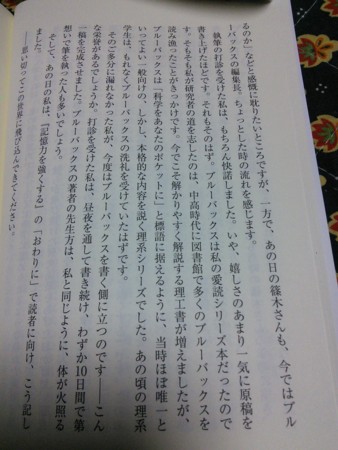 るのか」などと感慨に耽りたいところですが、一方で、あの日の篠木さんも、今ではブル
ーバックスの編集長。ちょっとした時の流れを感じます。
執筆の打診を受けた私は、もちろん快諾しました。いや、嬉しさのあまり一気に原稿を
書き上げたほどです。それもそのはず。ブルーバックスは私の愛読シリーズ本だったので
す。そもそも私が研究者の道を志したのは、中高時代に図書館で多くのブルーバックスを
読み漁ったことがきっかけです。今でこそ解かりやすく解説する理工書が増えましたが、
ブルーバックスは「科学をあなたのポケットに」と標語に据えるように、当時ほぼ唯一と
いってよい一般向けの、しかし、本格的な内容を説く理系シリーズでした。あの頃の理系
学生は、もれなくブルーバックスの洗礼を受けていたはずです。
そのご多分に漏れなかった私が、今度はブルーバックスを書く側に立つのです――こん
な栄誉があるでしょうか。打診を受けた私は、昼夜を通して書き続け、わずか10日間で第
一稿を完成させました。ブルーバックスの著者の先生方は、私と同じように、体が火照る
想いで筆を執った人も多いでしょう。
そして、あの日の私は、『記憶力を強くする』の「おわりに」で読者に向け、こう記し
ました。
――思い切ってこの世界に飛び込んできてください。